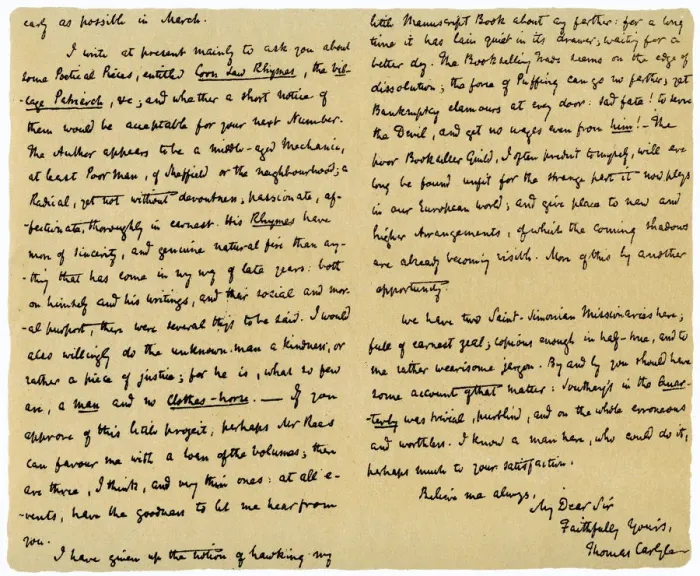 early as possible in March.
I write at present mainly to ask you about
some Poetical Pieces, entitled Corn Law Rhymes, the Vil-
-lage Patriarch, &c; and whether a short notice of
them would be acceptable for your next Number.
The Author appears to be a middle-aged Mechanic,
at least Poor Man, of Sheffield or the neighbourhood; a
Radical, yet not without devoutness; passionate, af-
-fectionate, thoroughly in earnest. His Rhymes have
more of sincerity, and genuine natural fire than any-
-thing that has come in my way of late years: both
on himself and his writings, and their social and mor-
-al purport, there were several things to be said. I would
also willingly do the unknown man a kindness, or
rather a piece of justice; for he is, what so few
are, a man and no clothes-horse. — If you
approve of this little project, perhaps Mr Rees
can favour me with a loan of the volumes; there
are three, I think, and very thin ones: at all e-
-vents, have the goodness to let me hear from
you.
I have given up the notion of hawking my
little Manuscript Book about any farther: for a long
time it has lain quiet in its drawer, waiting for a
better day. The Bookselling Trade seems on the edge of
dissolution; the force of Puffing can go no farther; yet
Bankruptcy clamours at every door: sad fate! to serve
the Devil, and get no wages even from him! — The
poor Bookseller Guild, I often predict to myself, will ere
long be found unfit for the strange part it now plays
in our European world; and give place to new and
higher Arrangements, of which the coming shadows
are already becoming visible. More of this by another
opportunity.
We have two Saint-Simonian Missionaries here;
full of earnest zeal; copious enough in half-true, and to
me rather wearisome jargon. By and by you should have
some account of that matter: Southey's in the Quar-
-terly was trivial, purblind, and on the whole erroneous
and worthless. I know a man here, who could do it,
perhaps much to your satisfaction.
Believe me always,
My Dear Sir
Faithfully Yours,
Thomas Carlyle